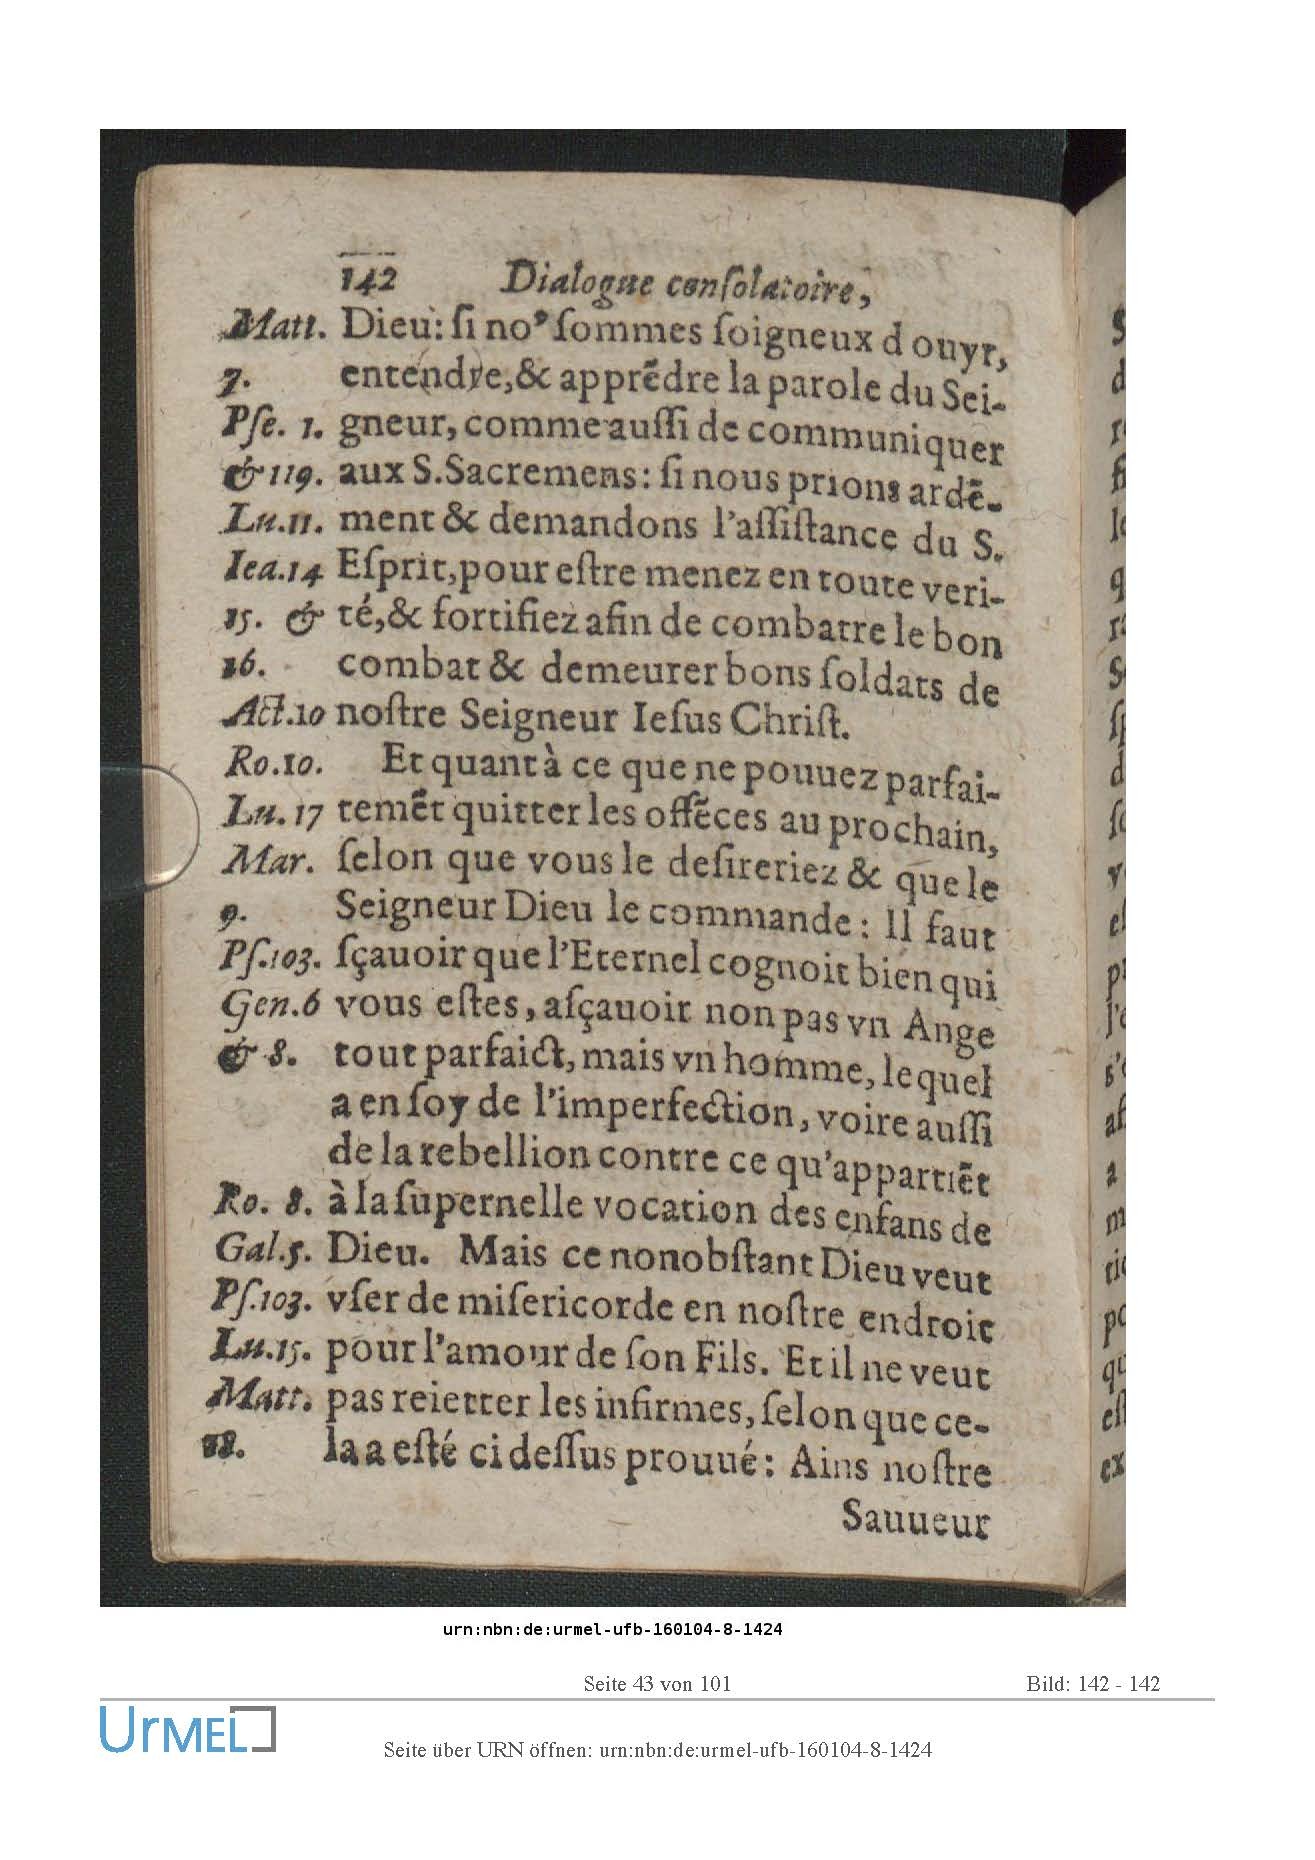 142 Dialogue conſolatoire,
Matt. Dieu: ſi noꝰ ſommes ſoigneux d ouyr,
7. entendre, & apprẽdre la parole du Sei-
Pſe. 1. gneur, comme auſſi de communiquer
& 119. aux S. Sacremens: ſi nous prions ardẽ-
Lu. 11. ment & demandons l'aſſiſtance du S.
Iea. 14 Eſprit, pour eſtre menez en toute veri-
15. & té, & fortifiez afin de combatre le bon
16. combat & demeurer bons ſoldats de
Act. 10 noſtre Seigneur Ieſus Chriſt.
Ro. 10. Et quant à ce que ne pouuez parfai-
Lu. 17 temẽt quitter les offẽces au prochain,
Mar. ſelon que vous le deſireriez & que le
9. Seigneur Dieu le commande: Il faut
Pſ. 103. ſçauoir que l'Eternel cognoit bien qui
Gen. 6 vous eſtes, aſçauoir non pas vn Ange
& 8. tout parfaict, mais vn homme, lequel
a en ſoy de l'imperfection, voire auſſi
de la rebellion contre ce qu'appartiẽt
Ro. 8. à la ſupernelle vocation des enfans de
Gal. 5. Dieu. Mais ce nonobſtant Dieu veut
Pſ. 103. vſer de miſericorde en noſtre endroit
Lu. 15. pour l'amour de ſon Fils. Et il ne veut
Matt. pas reietter les infirmes, ſelon que ce-
18. la a eſté ci deſſus prouué: Ains noſtre
Sauueur
urn:nbn:de:urmel-ufb-160104-8-1424
Seite 43 von 101 Bild: 142 - 142
UrMEL
Seite über URN öffnen: urn:nbn:de:urmel-ufb-160104-8-1424